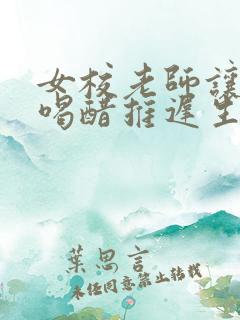 女校老師讓
喝醋推遲生
葉思言
未經同意禁止轉載